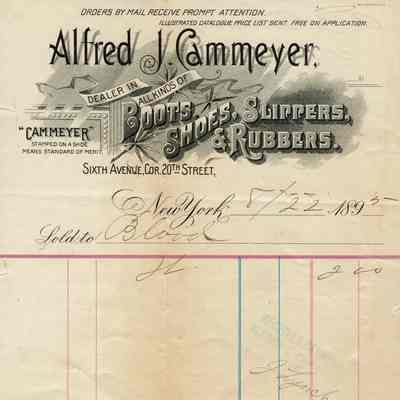 ORDERS BY MAIL RECEIVE PROMPT ATTENTION.
ILLUSTRATED CATALOGUE PRICE LIST SENT FREE ON APPLICATION.
Alfred J. Cammeyer,
DEALER IN ALL KINDS OF
BOOTS, SHOES, SLIPPERS, & RUBBERS.
"CAMMEYER"
STAMPED ON A SHOE
MEANS STANDARD OF MERIT.
SIXTH AVENUE, COR. 20TH STREET,
New York 8/22 1895
Sold to Blood
2 00